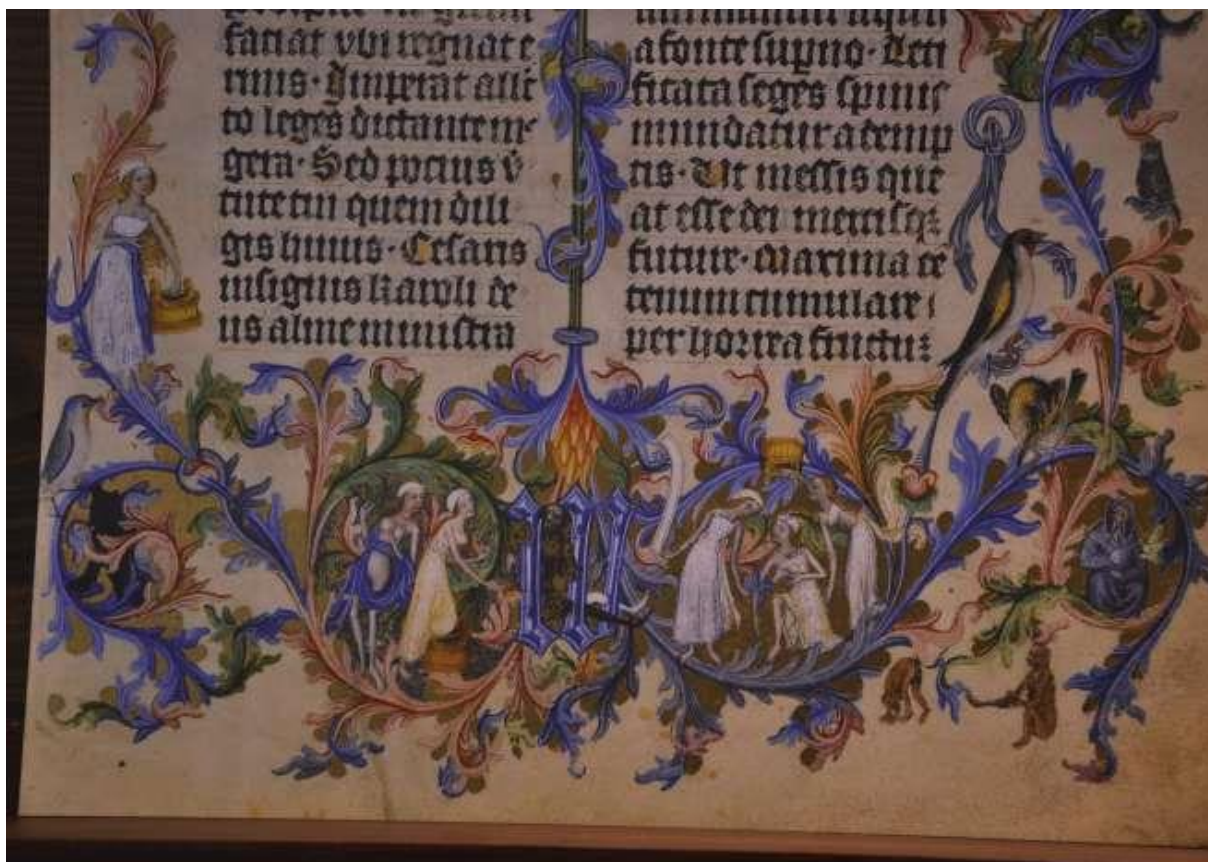 faciat vbi regnat e
rnus· Imperat alle
to leges dictante m
gera· Sed pocius v̄
tute tui quem dili
gis huius· Cesaris
insignis karoli de
us alme ministra
a fonte supno· Leti
ficata seges spinis
mundatur atemp
tis· Ut messis que
at esse dei mercisqꝫ
future· Maxima cē
tenum cumulare
per horrea fructuꝫ
W